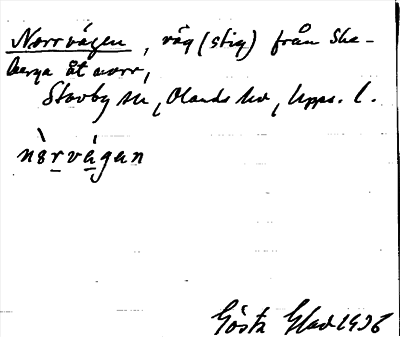 Norrvägen, väg (stig) från Ska-
berga åt norr,
Stavby sn, Olands hd, Upps. l.
nòrvä́gan
Gösta Glad 1936